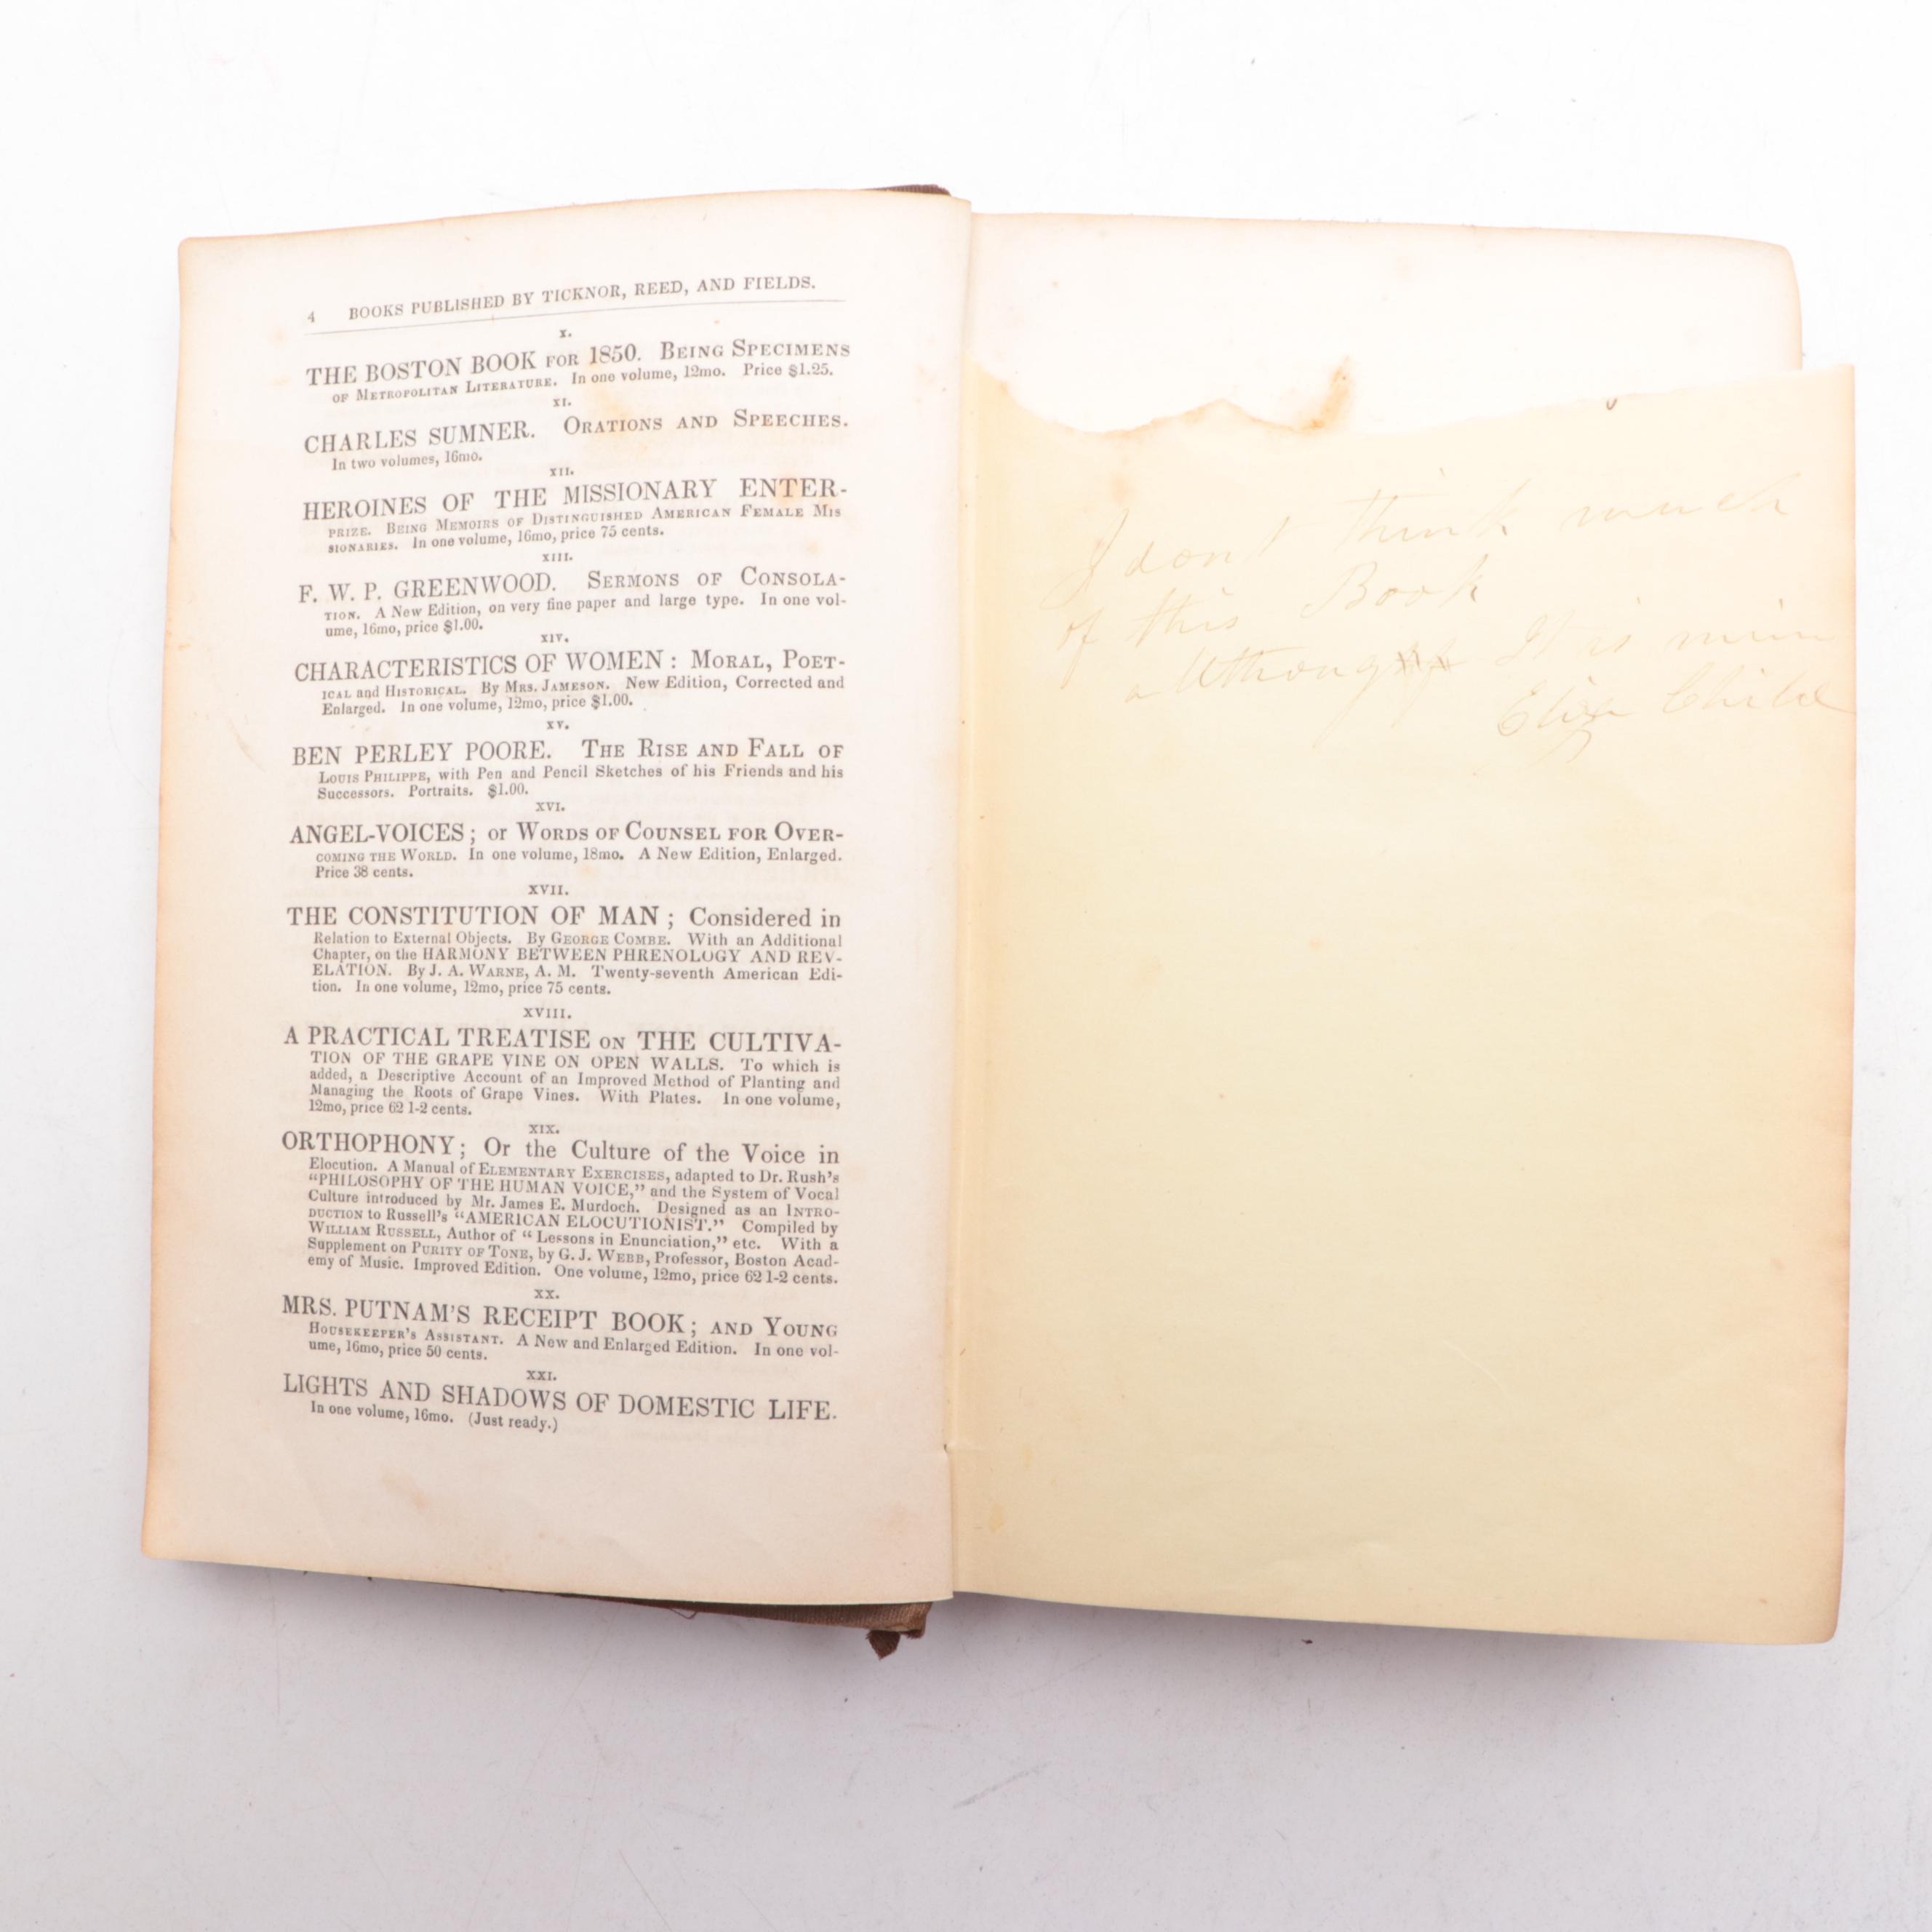 4 BOOKS PUBLISHED BY TICKNOR, REED, AND FIELDS.
X.
THE BOSTON BOOK FOR 1850. BEING SPECIMENS
OF METROPOLITAN LITERATURE. In one volume, 12mo. Price $1.25.
XI.
CHARLES SUMNER. ORATIONS AND SPEECHES.
In two volumes, 16mo.
XII.
HEROINES OF THE MISSIONARY ENTER-
PRIZE. BEING MEMOIRS OF DISTINGUISHED AMERICAN FEMALE MIS
SIONARIES. In one volume, 16mo, price 75 cents.
XIII.
F. W. P. GREENWOOD. SERMONS OF CONSOLA-
TION. A New Edition, on very fine paper and large type. In one vol-
ume, 16mo, price $1.00.
XIV.
CHARACTERISTICS OF WOMEN : MORAL, POET-
ICAL and HISTORICAL. By MRS. JAMESON. New Edition, Corrected and
Enlarged. In one volume, 12mo, price $1.00.
XV.
BEN PERLEY POORE. THE RISE AND FALL OF
LOUIS PHILIPPE, with Pen and Pencil Sketches of his Friends and his
Successors. Portraits. $1.00.
XVI.
ANGEL-VOICES ; OR WORDS OF COUNSEL FOR OVER-
COMING THE WORLD. In one volume, 18mo. A New Edition, Enlarged.
Price 38 cents.
XVII.
THE CONSTITUTION OF MAN ; Considered in
Relation to External Objects. By GEORGE COMBE. With an Additional
Chapter, on the HARMONY BETWEEN PHRENOLOGY AND REV-
ELATION. By J. A. WARNE, A. M. Twenty-seventh American Edi-
tion. In one volume, 12mo, price 75 cents.
XVIII.
A PRACTICAL TREATISE ON THE CULTIVA-
TION OF THE GRAPE VINE ON OPEN WALLS. To which is
added, a Descriptive Account of an Improved Method of Planting and
Managing the Roots of Grape Vines. With Plates. In one volume,
12mo, price 62 1-2 cents.
XIX.
ORTHOPHONY ; Or the Culture of the Voice in
Elocution. A Manual of ELEMENTARY EXERCISES, adapted to Dr. Rush's
"PHILOSOPHY OF THE HUMAN VOICE," and the System of Vocal
Culture introduced by Mr. James E. Murdoch. Designed as an INTRO-
DUCTION to Russell's "AMERICAN ELOCUTIONIST." Compiled by
WILLIAM RUSSELL, Author of "Lessons in Enunciation," etc. With a
Supplement on PURITY OF TONE, by G. J. WEBB, Professor, Boston Acad-
emy of Music. Improved Edition. One volume, 12mo, price 62 1-2 cents.
XX.
MRS. PUTNAM'S RECEIPT BOOK ; AND YOUNG
HOUSEKEEPER'S ASSISTANT. A New and Enlarged Edition. In one vol-
ume, 16mo, price 50 cents.
XXI.
LIGHTS AND SHADOWS OF DOMESTIC LIFE.
In one volume, 16mo. (Just ready.)
I dont think much
of this Book
It is mine
Eliza Child